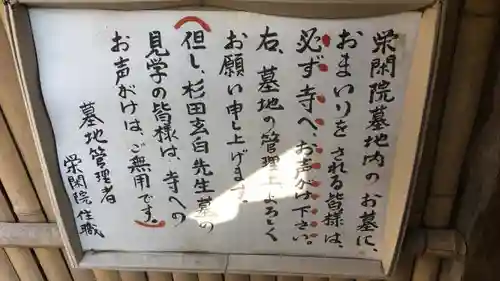 栄閑院墓地内のお墓に、
おまいりをされる皆様は、
必ず寺へ、お声が下さい。
右、墓地の管理上よろしく
お願い申し上げます。
但し、杉田玄白先生墓の
見学の皆様は、寺への
お声がけは、ご無用です。
墓地管理者
栄閑院住職